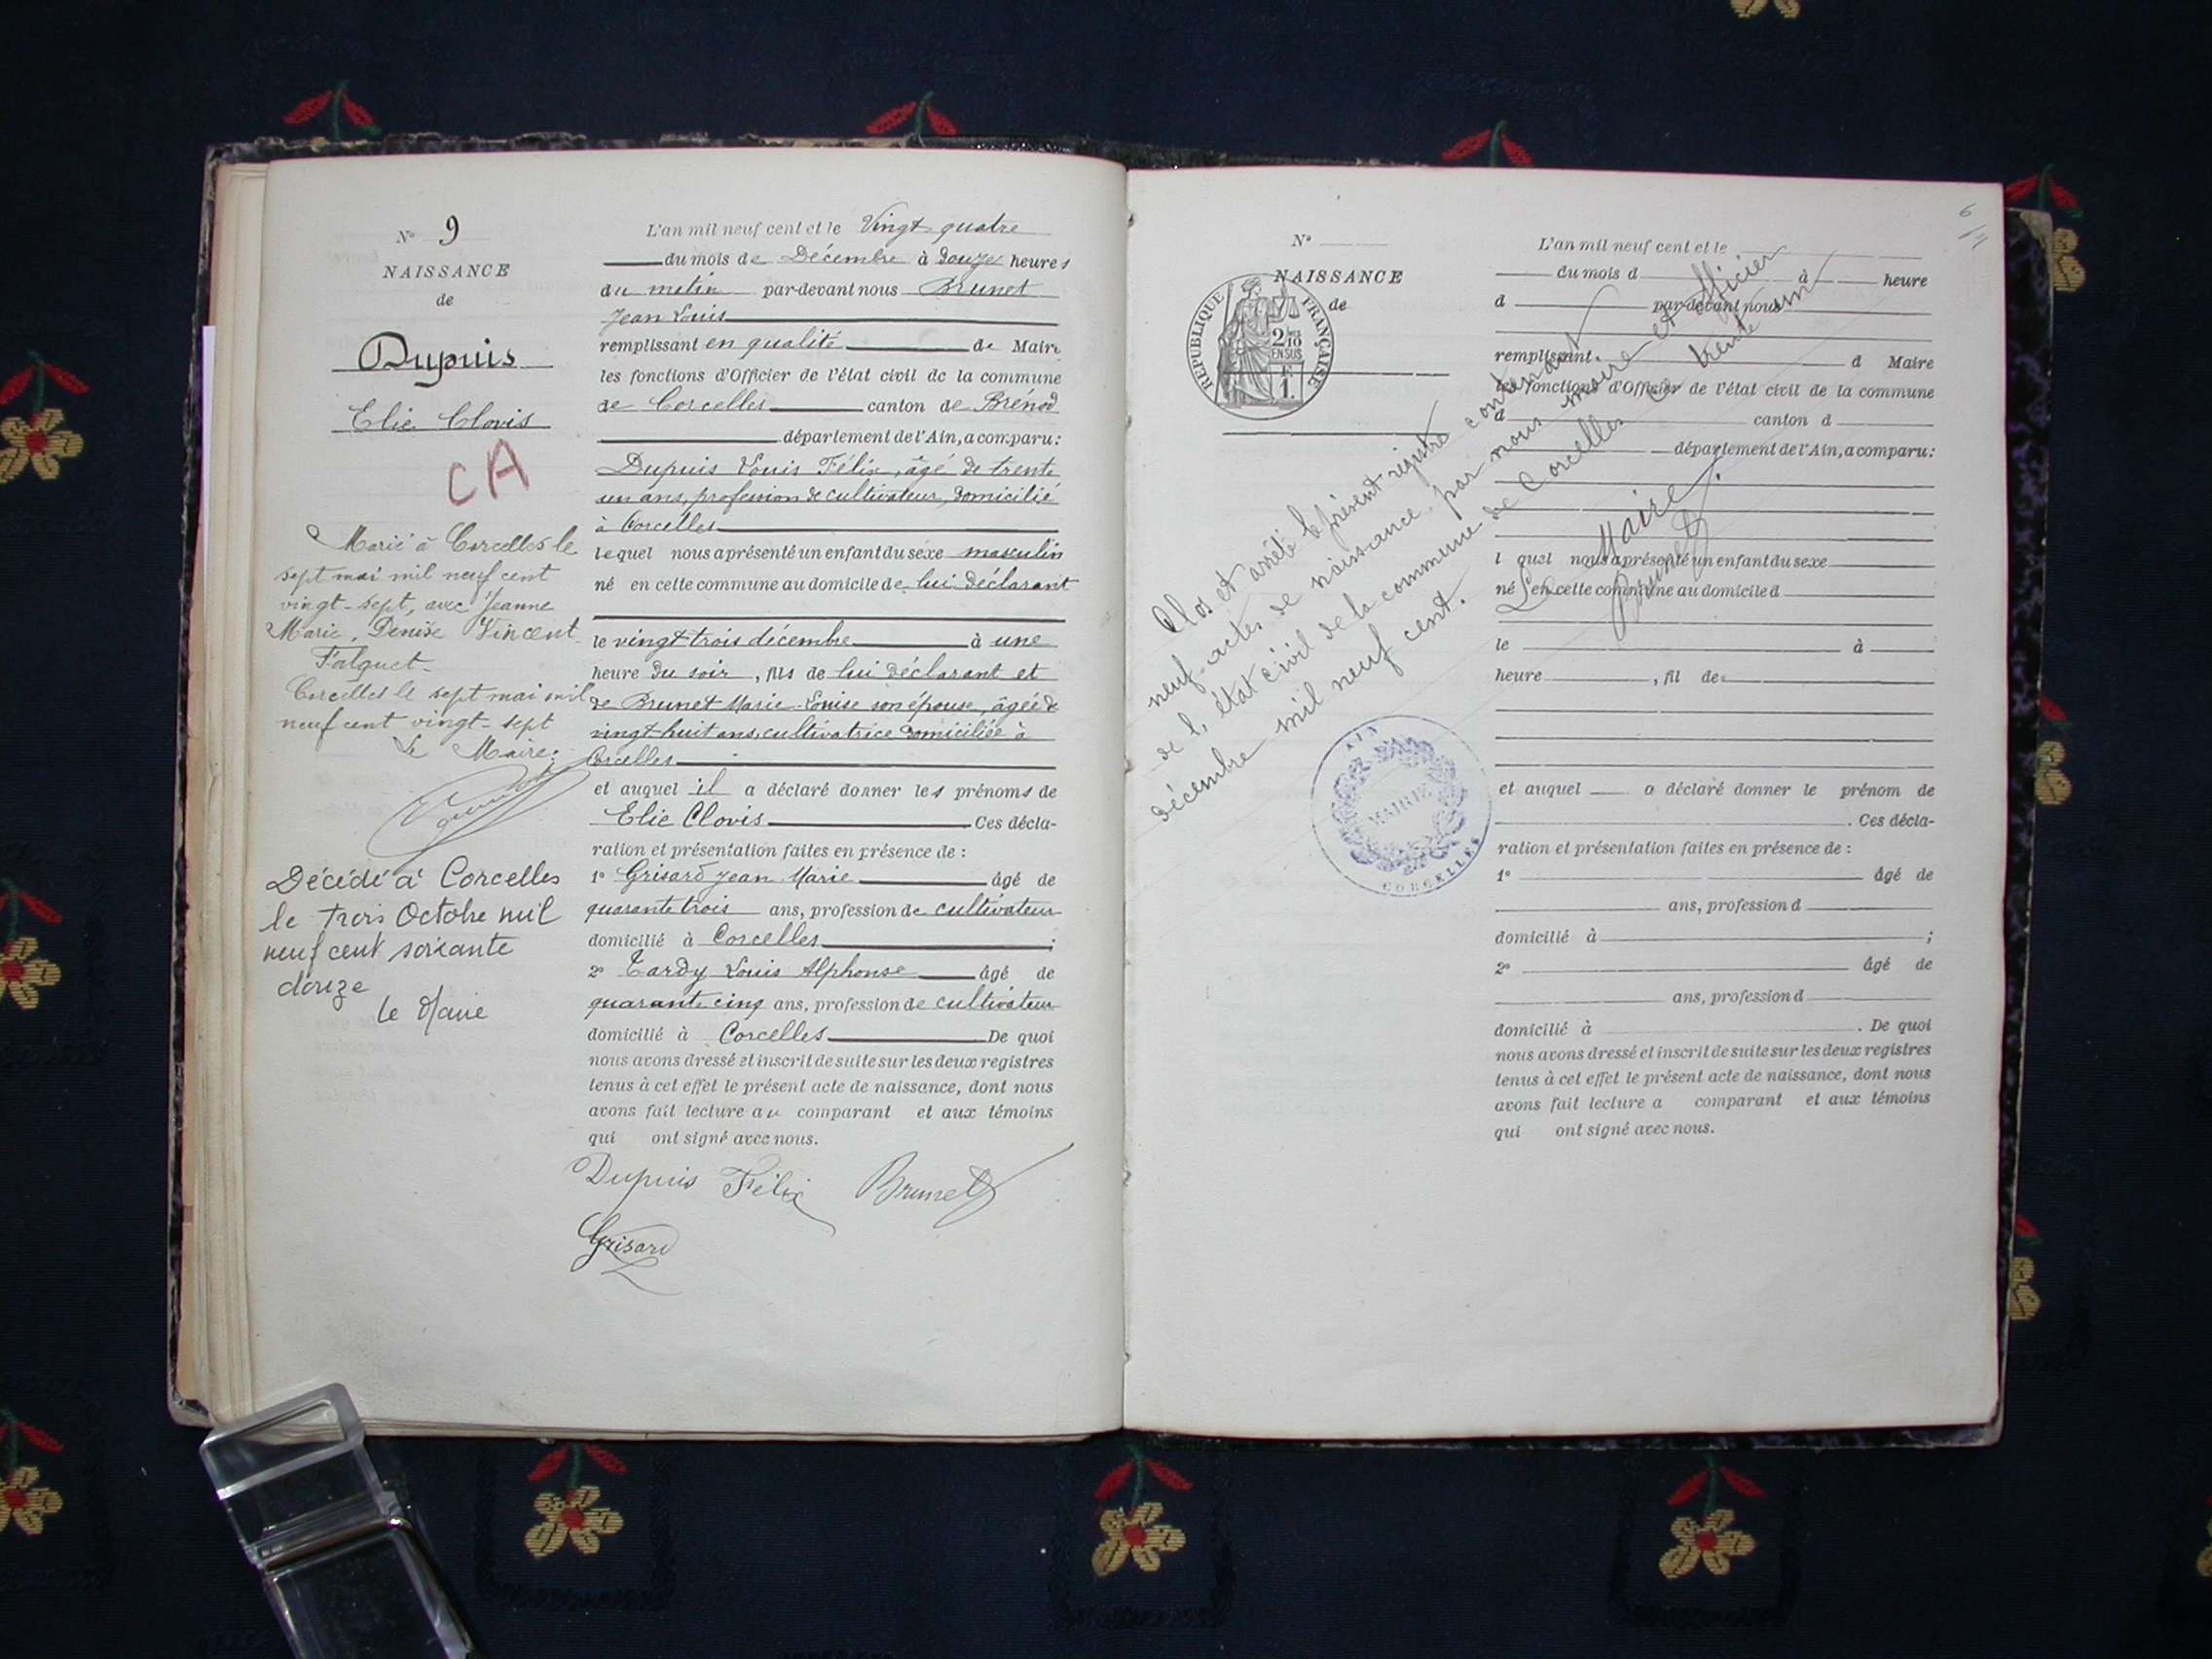 N° 9
NAISSANCE
de
Dupuis
Elie Clovis
CA
Marié à Corcelles le
sept mai mil neuf cent
vingt-sept, avec Jeanne
Marie, Denise Vincent
Falquet.
Corcelles le sept mai mil
neuf cent vingt-sept
Le Maire:
Décédé à Corcelles
le trois Octobre mil
neuf cent soixante
douze
le Maire
L'an mil neuf cent et le Vingt quatre
du mois de Décembre à douze heures
du matin par-devant nous Brunet
Jean Louis
remplissant en qualité de Maire
les fonctions d'Officier de l'état civil de la commune
de Corcelles canton de Brénod
département de l'Ain, a comparu:
Dupuis Louis Félix, âgé de trente
un ans, profession de cultivateur, domicilié
à Corcelles
lequel nous a présenté un enfant du sexe masculin
né en cette commune au domicile de lui déclarant
le vingt trois décembre à une
heure du soir, fils de lui déclarant et
de Brunet Marie-Louise son épouse, âgée de
vingt huit ans, cultivatrice domiciliée à
Corcelles
et auquel il a déclaré donner les prénoms de
Elie Clovis Ces décla-
ration et présentation faites en présence de :
1° Grisard Jean Marie âgé de
quarante trois ans, profession de cultivateur
domicilié à Corcelles ;
2° Tardy Louis Alphonse âgé de
quarante cinq ans, profession de cultivateur
domicilié à Corcelles De quoi
nous avons dressé et inscrit de suite sur les deux registres
tenus à cet effet le présent acte de naissance, dont nous
avons fait lecture au comparant et aux témoins
qui ont signé avec nous.
Dupuis Félix Brunet
Grisard
6
N°
NAISSANCE
de
RÉPUBLIQUE FRANÇAISE
2/10
EN SUS
1 F.
Clos et arrêté le présent registre contenant
neuf actes de naissance, par nous maire et officier
de l'état civil de la commune de Corcelles ce trente un
décembre mil neuf cent.
Le Maire.
Brunet
AIN
MAIRIE
CORCELLES
L'an mil neuf cent et le
du mois d à heure
d par-devant nous
remplissant d Maire
les fonctions d'Officier de l'état civil de la commune
d canton d
département de l'Ain, a comparu:
l quel nous a présenté un enfant du sexe
né en cette commune au domicile d
le à
heure , fil de
et auquel a déclaré donner le prénom de
. Ces décla-
ration et présentation faites en présence de :
1° âgé de
ans, profession d
domicilié à ;
2° âgé de
ans, profession d
domicilié à . De quoi
nous avons dressé et inscrit de suite sur les deux registres
tenus à cet effet le présent acte de naissance, dont nous
avons fait lecture a comparant et aux témoins
qui ont signé avec nous.